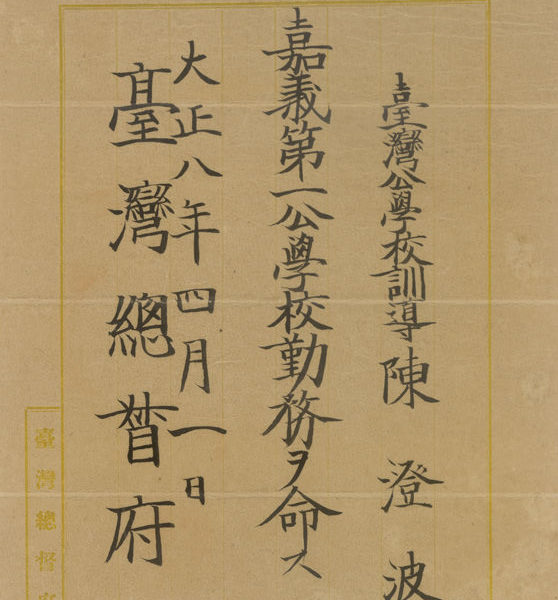 臺灣公學校訓導陳澄波
嘉義第一公學校勤務ヲ命ス
大正八年四月一日
臺灣總督府
臺灣總督府